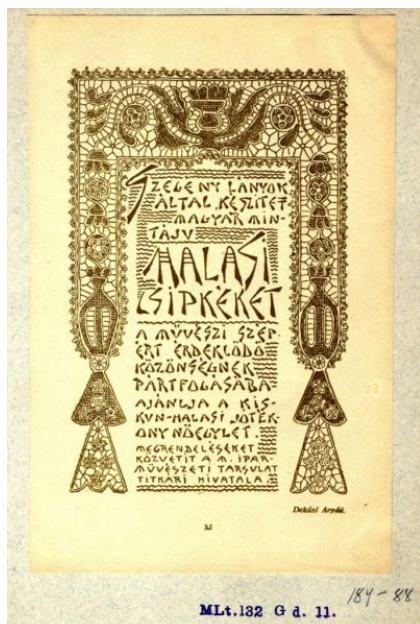 SZEGENY LÁNYOK
ÁLTAL KÉSZITET
MAGYAR MIN-
TÁJU
HALASI
CSIPKÉKET
A MŰVÉSZI SZÉP-
ÉRT ÉRDEKLŐDŐ
KÖZÖNSÉGNEK
PÁRTFOGÁSÁBA
AJÁNLJA A KIS-
KUN-HALASI JÓTÉK-
ONY NŐEGYLET.
MEGRENDELÉSEKET
KÖZVETIT A M. IPAR-
MŰVÉSZETI TÁRSULAT
TITKÁRI HIVATALA.
Dekáni Árpád.
MLt.132 G d. 11.
184-88